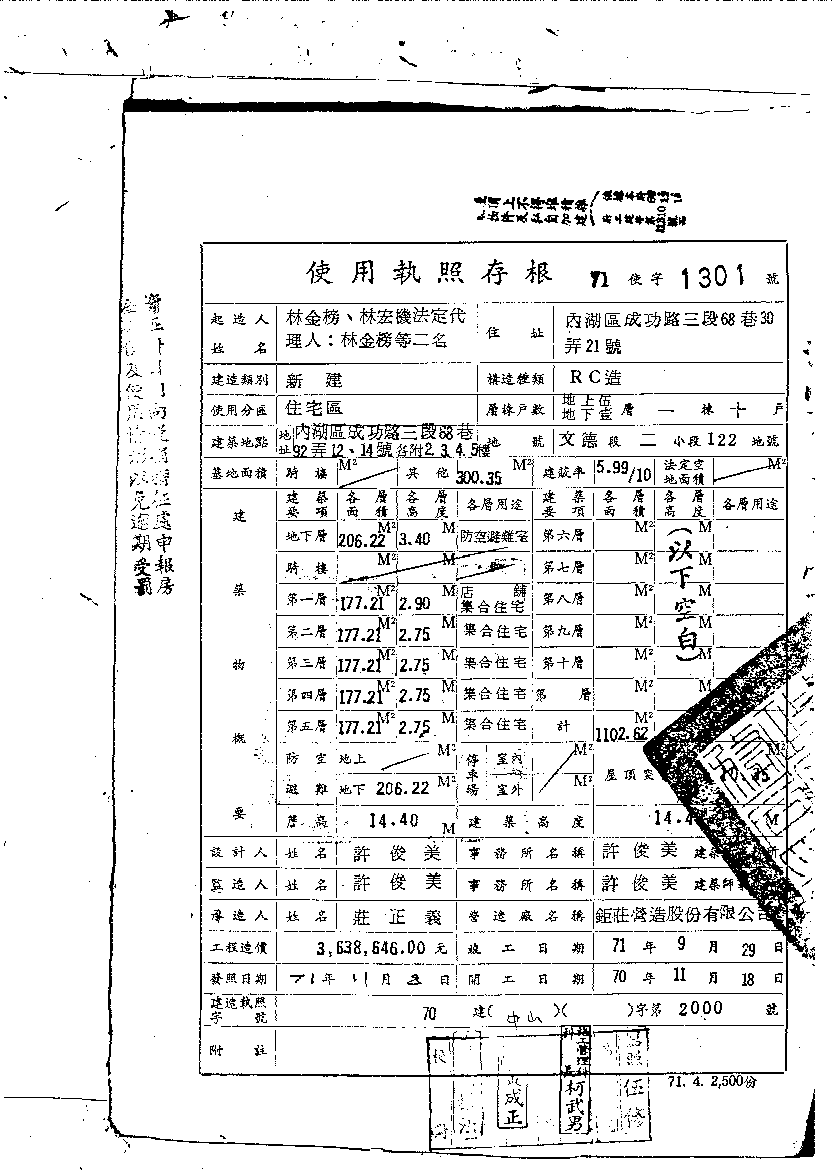 使用執照存根 71 使字 1301 號
起造人姓名 林金榜、林宏機法定代理人：林金榜等二名 住址 內湖區成功路三段68巷30弄21號
建造類別 新建 構造種類 RC造
使用分區 住宅區 層棟戶數 地上伍地下壹層 一棟十戶
建築地點 地址 內湖區成功路三段68巷92弄12、14號各附2.3.4.5樓 地號 文德段二小段122地號
基地面積 騎樓 M² 其他 300.35 M² 建蔽率 5.99/10 法定空地面積 M²
建築物概要
建築要項 各層面積 各層高度 各層用途 建築要項 各層面積 各層高度 各層用途
地下層 206.22 M² 3.40 M 防空避難室 第六層 M² M
騎樓 M² M 第七層 M² M
第一層 177.21 M² 2.90 M 店舖集合住宅 第八層 M² M
第二層 177.21 M² 2.75 M 集合住宅 第九層 M² M
第三層 177.21 M² 2.75 M 集合住宅 第十層 M² M
第四層 177.21 M² 2.75 M 集合住宅 第 層 M² M
第五層 177.21 M² 2.75 M 集合住宅 計 1102.62 M²
(以下空白)
防空避難 地上 M² 停車場 室內 M²
地下 206.22 M² 室外 M² 屋頂突
簷高 14.40 M 建築高度 14.4 M
設計人 姓名 許俊美 事務所名稱 許俊美
監造人 姓名 許俊美 事務所名稱 許俊美建築師
承造人 姓名 莊正義 營造廠名稱 鉅莊營造股份有限公司
工程造價 3,638,646.00元 竣工日期 71年9月29日
發照日期 71年11月3日 開工日期 70年11月18日
建造執照字號 70 建(中山)( )字第 2000 號
附註
施工管理科
科長 柯武男
成正
伍修
71.4.2,500份